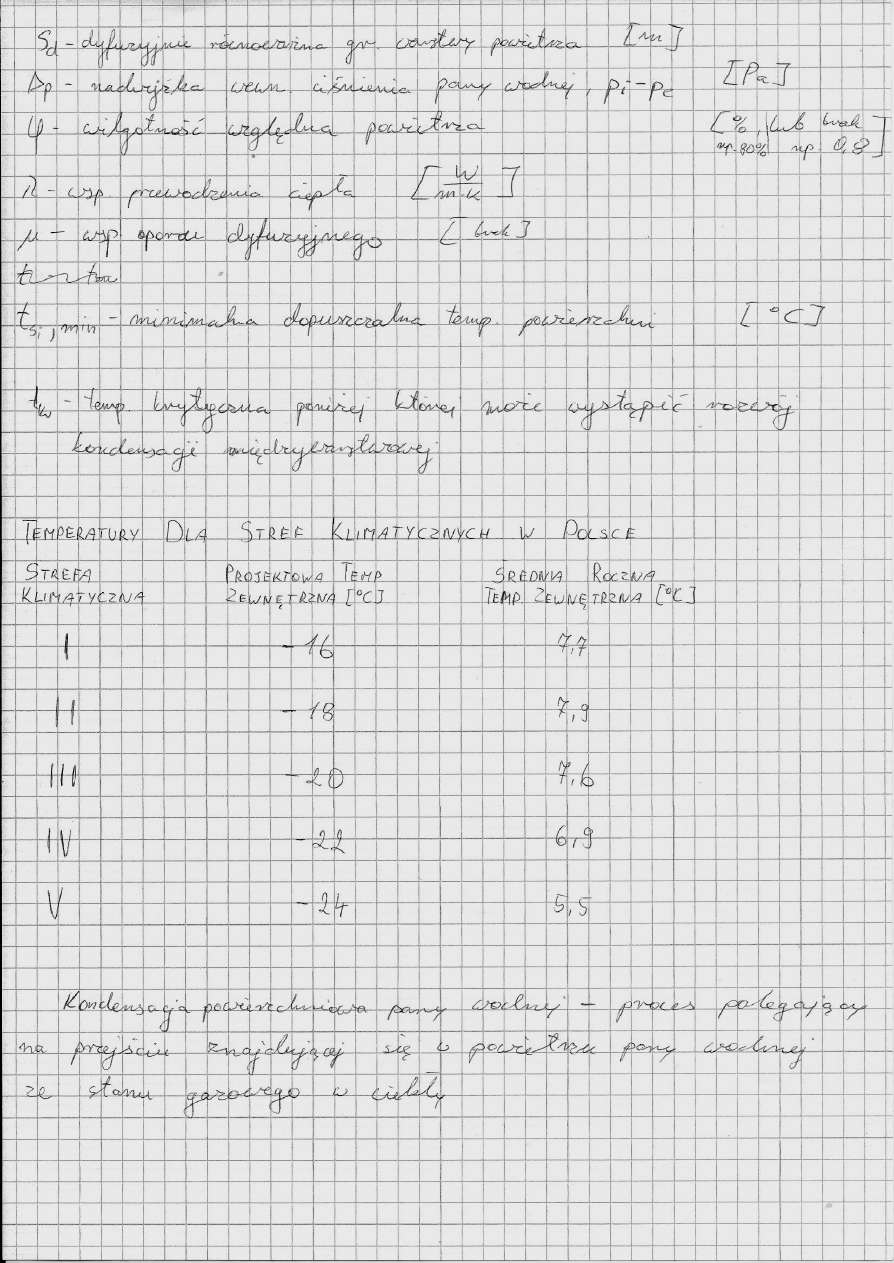 Sd - dyfuzyjnie równoważna gr. warstwy powietrza [m]
Δp - nadwyżka wewn. ciśnienia pary wodnej, pi-pe [Pa]
φ - wilgotność względna powietrza [%, lub brak
np. 80% np. 0,8]
λ - wsp. przewodzenia ciepła [W/m·K]
μ - wsp. oporu dyfuzyjnego [brak]
tsi,min - minimalna dopuszczalna temp. powierzchni [°C]
tkr - temp. krytyczna poniżej której może wystąpić rozwój
kondensacji międzywarstwowej
TEMPERATURY DLA STREF KLIMATYCZNYCH W POLSCE
STREFA PROJEKTOWA TEMP ŚREDNIA ROCZNA
KLIMATYCZNA ZEWNĘTRZNA [°C] TEMP. ZEWNĘTRZNA [°C]
I -16 7,7
II -18 7,9
III -20 7,6
IV -22 6,9
V -24 5,5
Kondensacja powierzchniowa pary wodnej - proces polegający
na przejściu znajdującej się w powietrzu pary wodnej
ze stanu gazowego w ciekły